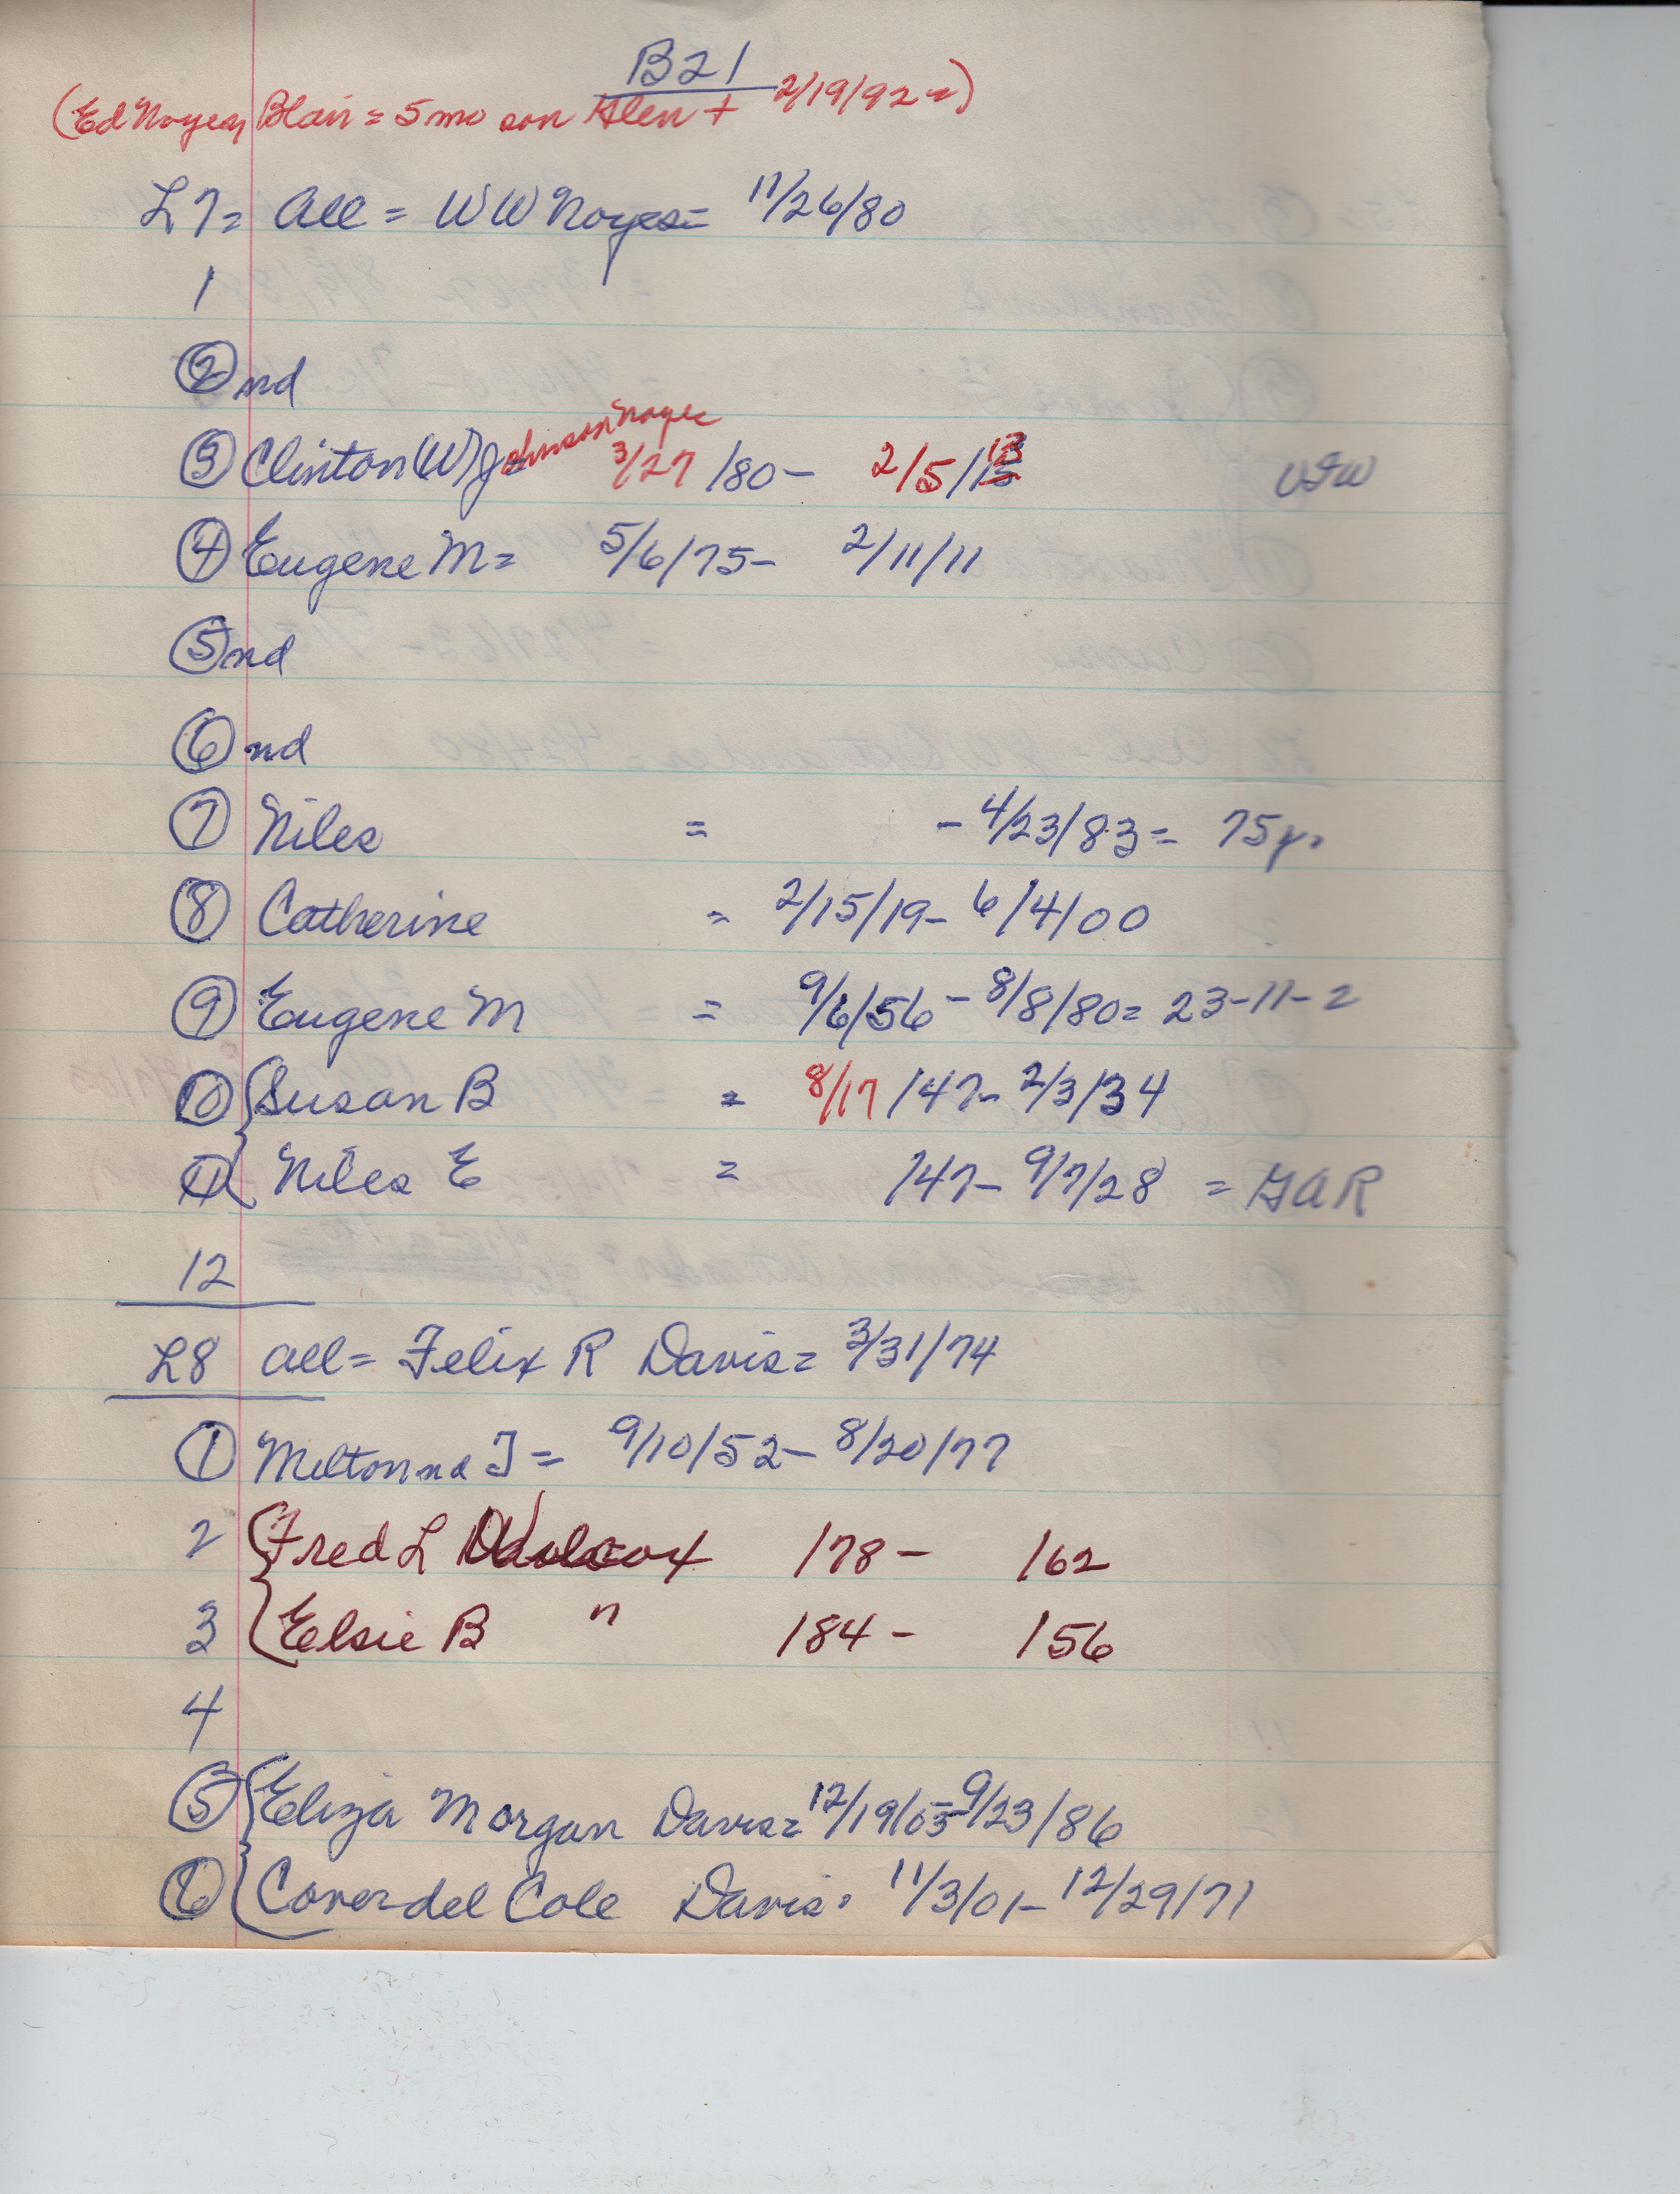 B21
(Ed Noyes Blair = 5 mo son Glen + 2/19/92 =)
L7= All = WW Noyes= 11/26/80
1
2 nd
3 Clinton (W) Johnson Noyes 3/27/80- 2/5/13 VFW
4 Eugene M= 5/6/75- 2/11/11
5 nd
6 nd
7 Niles = - 4/23/83= 75y.
8 Catherine = 2/15/19- 6/4/00
9 Eugene M = 9/6/56- 8/8/80= 23-11-2
10 {Susan B = 8/17/47- 2/3/34
11 {Niles E = /47- 9/7/28 = GAR
12
L8 all= Felix R Davis= 3/31/74
1 Milton nd J= 9/10/52- 8/20/77
2 {Fred L Wilcox /78- /62
3 {Elsie B " /84- /56
4
5 {Eliza Morgan Davis= 12/19/03- 9/23/86
6 {Coverdel Cole Davis= 11/3/01- 12/29/71